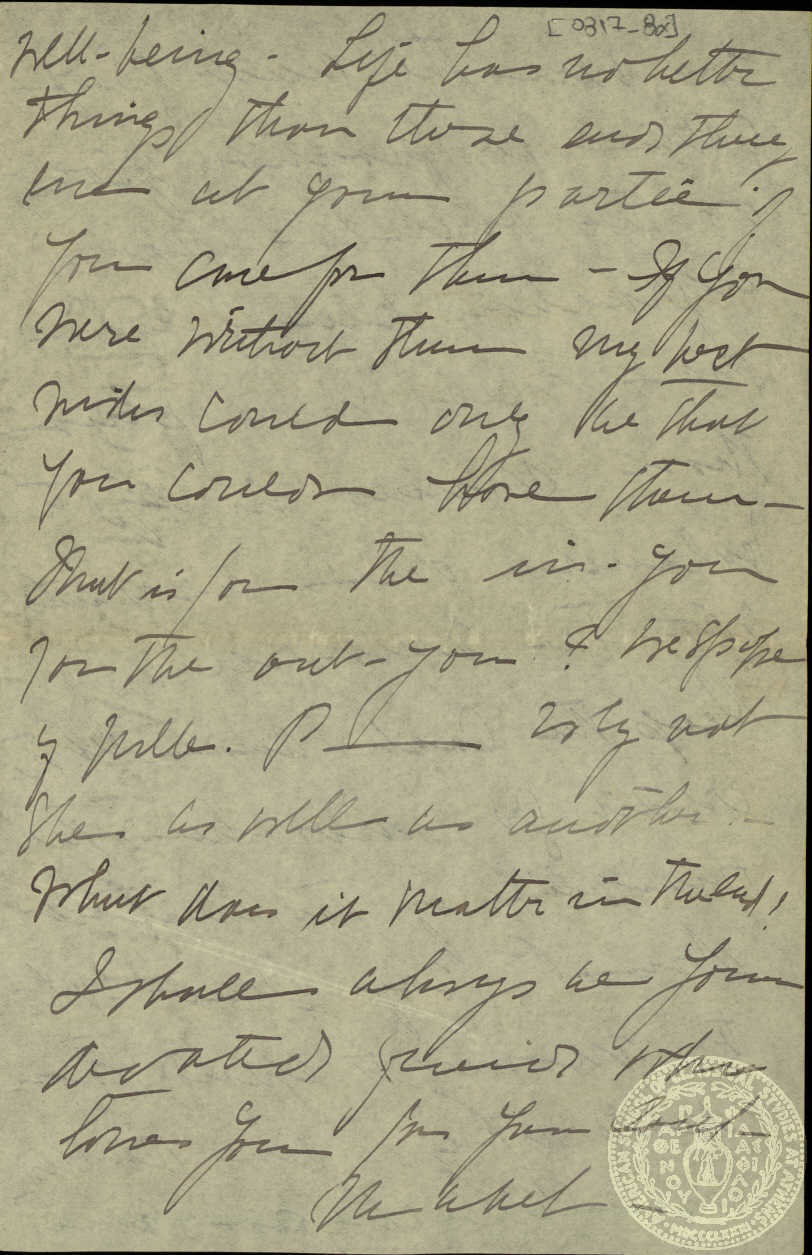 [0317-80]
well-being - Life has no better
things than these and they
are at your partie if
you care for them - If you
were without them my best
wishes could only be that
you could have them -
that is for the in-you
for the out-you ?
well. P—— why not
she as well as another -
What does it matter in the end!
I shall always be your
devoted friend who
loves you for your
Mabel -
AMERICAN S OF CLASSICAL STUDIES AT ATHENS
MDCCCLXXXI